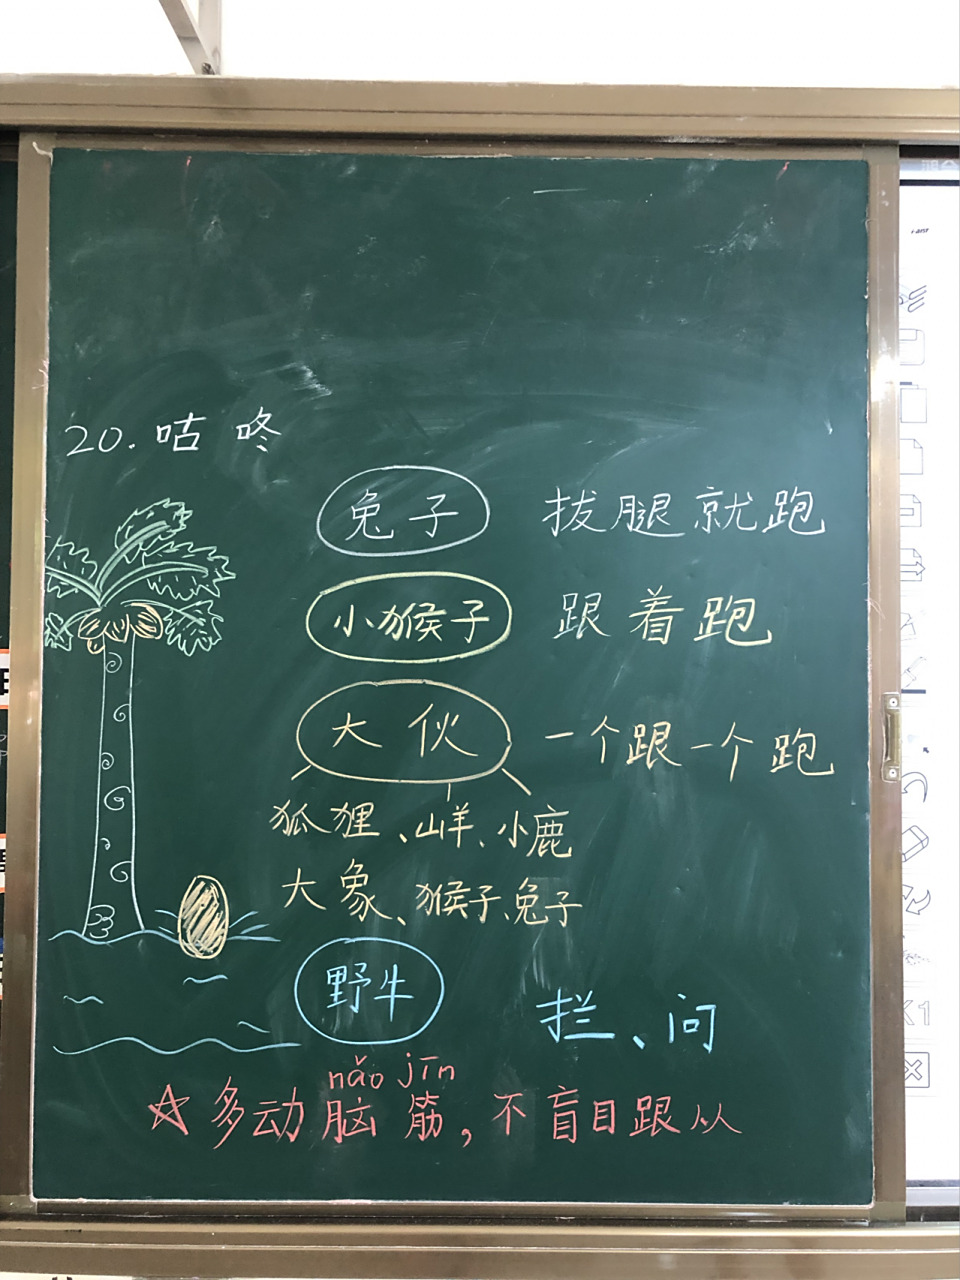 20. 咕咚
兔子 拔腿就跑
小猴子 跟着跑
大伙 一个跟一个跑
狐狸、山羊、小鹿
大象、猴子、兔子
野牛 拦、问
nǎo jīn
☆多动脑筋,不盲目跟从